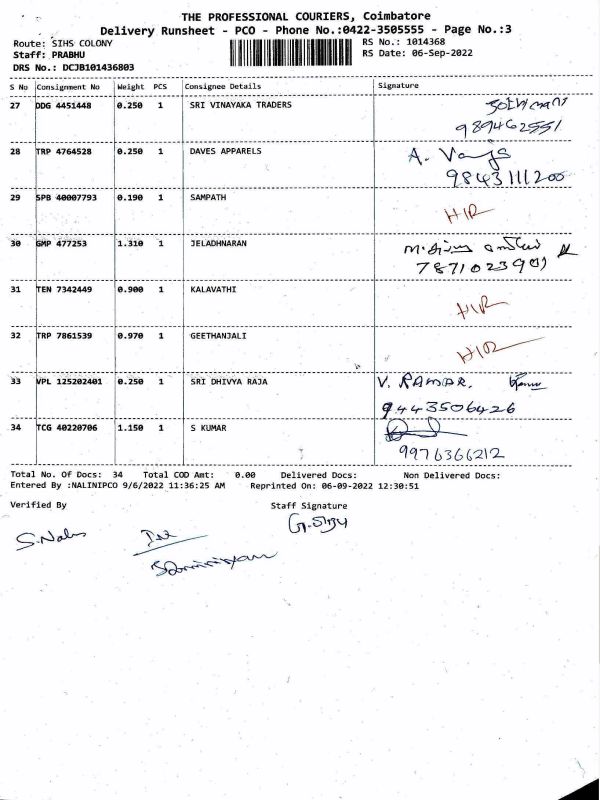 THE PROFESSIONAL COURIERS, Coimbatore
Delivery Runsheet - PCO - Phone No.:0422-3505555 - Page No.:3
Route: SIHS COLONY RS No.: 1014368
Staff: PRABHU RS Date: 06-Sep-2022
DRS No.: DCJB101436803
S No Consignment No Weight PCS Consignee Details Signature
27 DDG 4451448 0.250 1 SRI VINAYAKA TRADERS
989462551
28 TRP 4764528 0.250 1 DAVES APPARELS A.
9843111200
29 SPB 40007793 0.190 1 SAMPATH
HIR
30 GMP 477253 1.310 1 JELADHNARAN
7871023901
31 TEN 7342449 0.900 1 KALAVATHI
HIR
32 TRP 7861539 0.970 1 GEETHANJALI
HIR
33 VPL 125202401 0.250 1 SRI DHIVYA RAJA V. RAMAR.
9443506426
34 TCG 40220706 1.150 1 S KUMAR
9976366212
Total No. Of Docs: 34 Total COD Amt: 0.00 Delivered Docs: Non Delivered Docs:
Entered By :NALINIPCO 9/6/2022 11:36:25 AM Reprinted On: 06-09-2022 12:30:51
Verified By Staff Signature